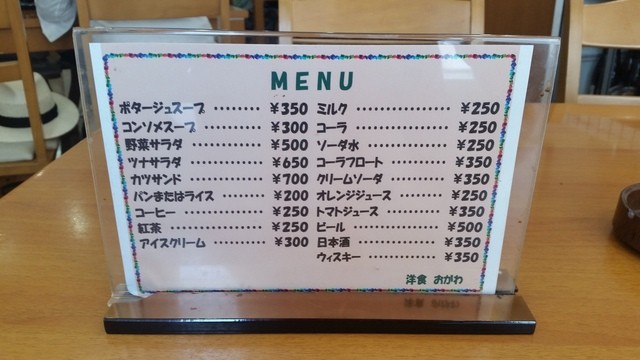 MENU
ポタージュスープ ‥‥‥‥ ¥350
コンソメスープ ‥‥‥‥ ¥300
野菜サラダ ‥‥‥‥‥ ¥500
ツナサラダ ‥‥‥‥‥ ¥650
カツサンド ‥‥‥‥‥ ¥700
パンまたはライス ‥‥‥‥ ¥200
コーヒー ‥‥‥‥‥‥ ¥250
紅茶 ‥‥‥‥‥‥‥ ¥250
アイスクリーム ‥‥‥‥ ¥300
ミルク ‥‥‥‥‥‥‥ ¥250
コーラ ‥‥‥‥‥‥‥ ¥250
ソーダ水 ‥‥‥‥‥‥ ¥250
コーラフロート ‥‥‥‥ ¥350
クリームソーダ ‥‥‥‥ ¥350
オレンジジュース ‥‥‥‥ ¥250
トマトジュース ‥‥‥‥ ¥350
ビール ‥‥‥‥‥‥‥ ¥500
日本酒 ‥‥‥‥‥‥‥ ¥350
ウィスキー ‥‥‥‥‥‥ ¥350
洋食 おがわ